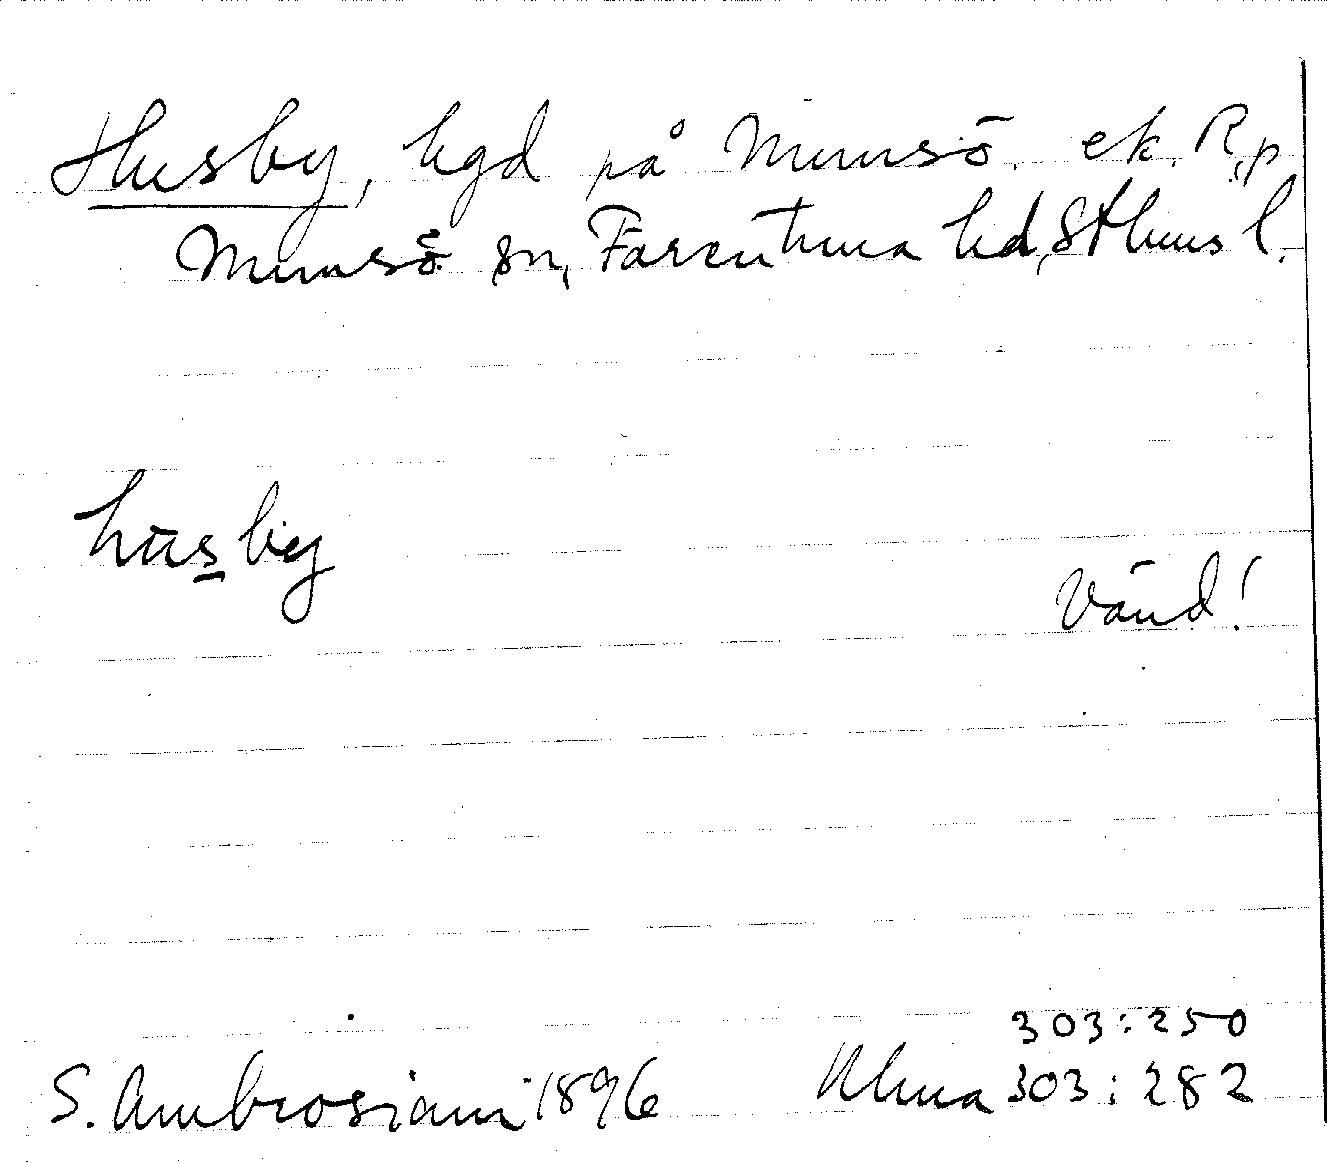 Husby, hgd på Munsö, ek. R, p
Munsö sn, Färentuna hd, Sthms l.
hūsby
Vänd!
303:250
S. Ambrosiani 1896 Ulma 303:282